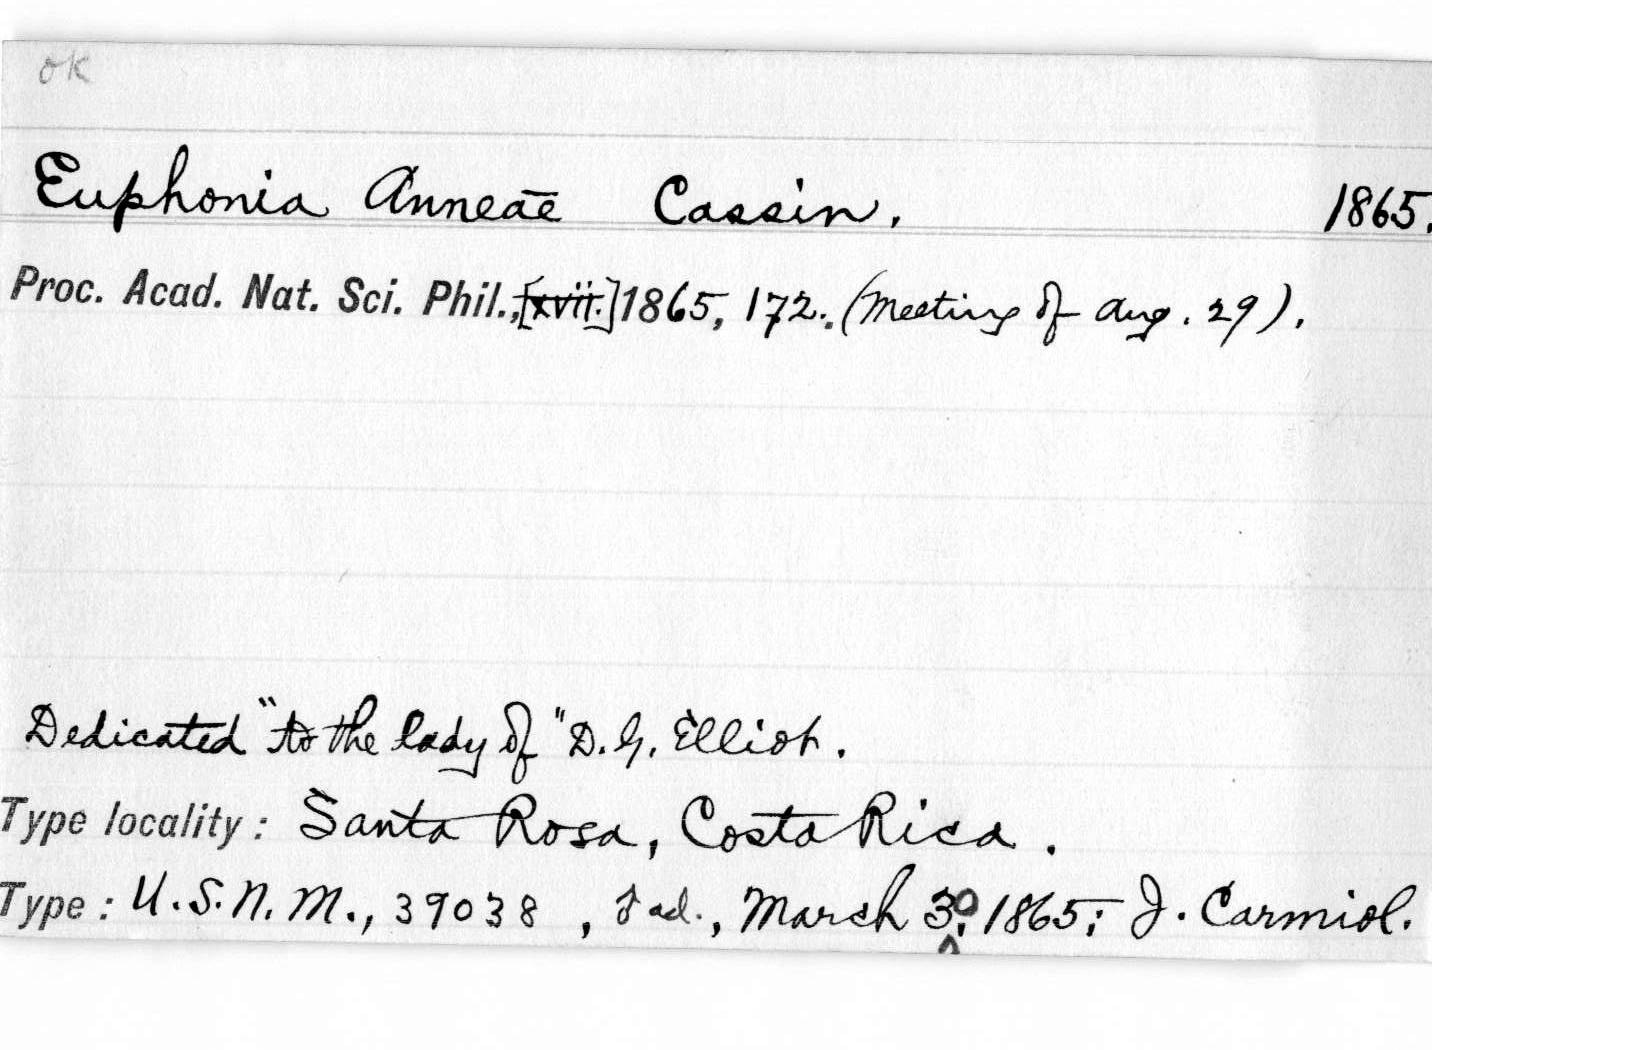 ok
Euphonia Anneae Cassin. 1865.
Proc. Acad. Nat. Sci. Phil., [xvii.] 1865, 172. (Meeting of Aug. 29).
Dedicated "to the lady of" D. G. Elliot.
Type locality: Santa Rosa, Costa Rica.
Type: U.S.N.M., 39038, ad., March 30, 1865; J. Carmiol.